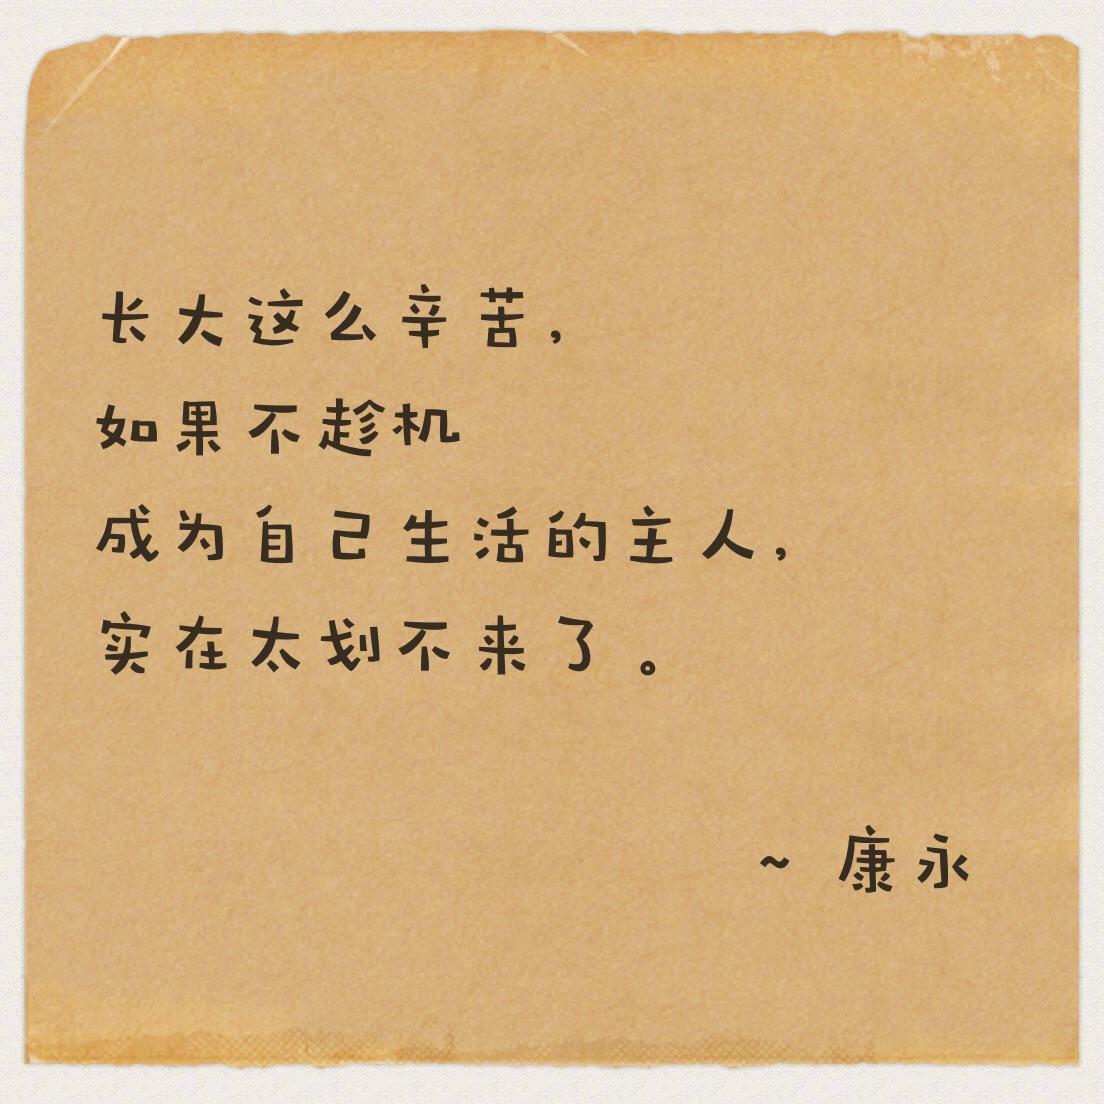 长大这么辛苦，
如果不趁机
成为自己生活的主人，
实在太划不来了。
~ 康永